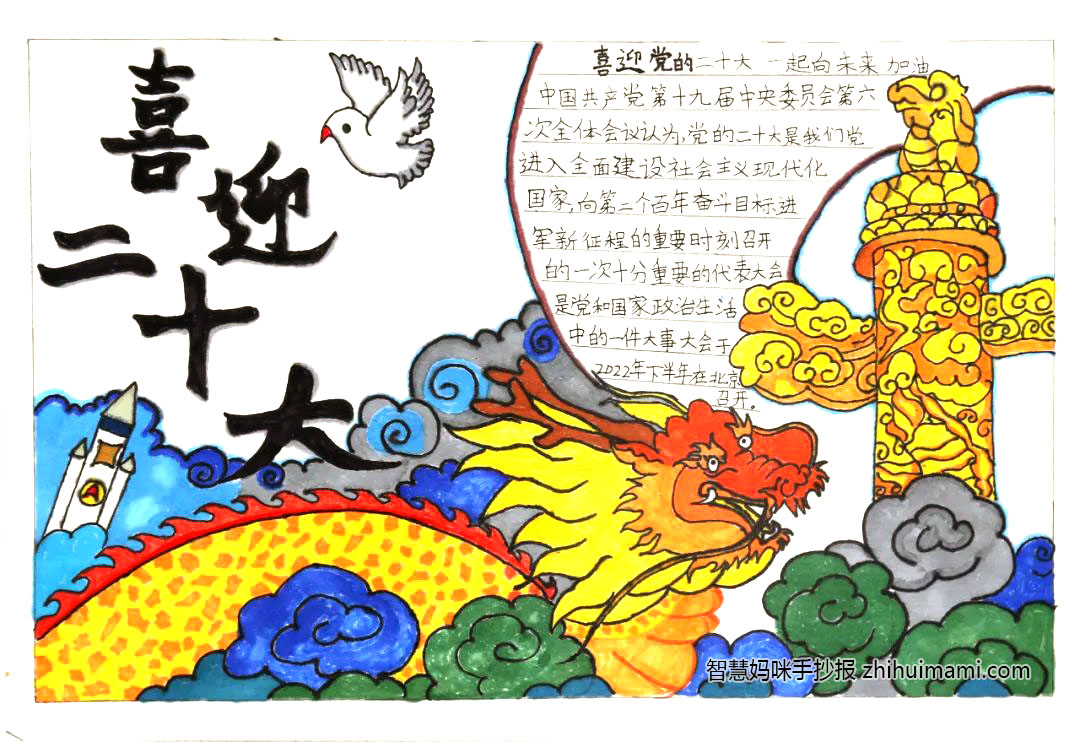 喜迎
二十大
喜迎党的二十大 一起向未来 加油
中国共产党第十九届中央委员会第六
次全体会议认为,党的二十大是我们党
进入全面建设社会主义现代化
国家,向第二个百年奋斗目标进
军新征程的重要时刻召开
的一次十分重要的代表大会
是党和国家政治生活
中的一件大事大会于
2022年下半年在北京
召开。
智慧妈咪手抄报 zhihuimami.com